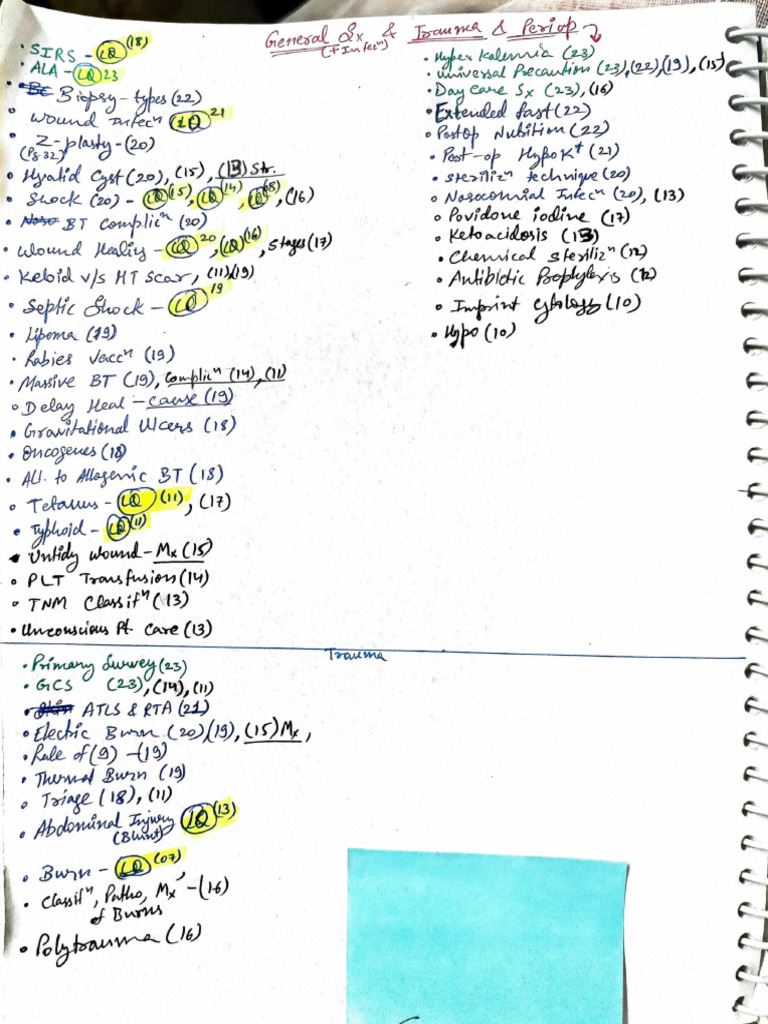 General Sx & Trauma & Periop
(+ Infecⁿ)
• SIRS - LQ (18)
• ALA - LQ 23
• Biopsy - types (22)
• Wound Infecⁿ LQ 21
• Z-plasty - (20)
(Pg 32)
• Hyatid Cyst (20), (15), (13) Str.
• Shock (20) - LQ (15), LQ (14), LQ (08), (16)
• BT Complicⁿ (20)
• Wound Healing - LQ 20, LQ (16), Stages (17)
• Keloid v/s HT Scar, (11) (19)
• Septic Shock - LQ 19
• Lipoma (19)
• Rabies Vaccⁿ (19)
• Massive BT (19), Complicⁿ (14), (11)
• Delay Heal - cause (19)
• Gravitational Ulcers (18)
• Oncogenes (18)
• Alt. to Allogenic BT (18)
• Tetanus - LQ (11), (17)
• Typhoid - LQ (11)
• Untidy wound - Mx (15)
• PLT Transfusion (14)
• TNM Classifⁿ (13)
• Unconscious Pt. Care (13)
• Hyper Kalemia (23)
• Universal Precaution (23), (22), (19), (15)
• Day Care Sx (23), (16)
• Extended fast (22)
• Postop Nutrition (22)
• Post-op Hypo K⁺ (21)
• Sterilizⁿ technique (20)
• Nosocomial Infecⁿ (20), (13)
• Povidone iodine (17)
• Ketoacidosis (13)
• Chemical Sterilizⁿ (12)
• Antibiotic Prophylexis (12)
• Imprint Cytology (10)
• Hypo (10)
Trauma
• Primary Survey (23)
• GCS (23), (14), (11)
• ATLS & RTA (21)
• Electric Burn (20), (19), (15) Mx,
• Rule of (9) - (19)
• Thermal Burn (19)
• Triage (18), (11)
• Abdominal Injury LQ (13)
(Blunt)
• Burn - LQ (07)
• Classifⁿ, Patho, Mx - (16)
of Burns
• Polytrauma (16)